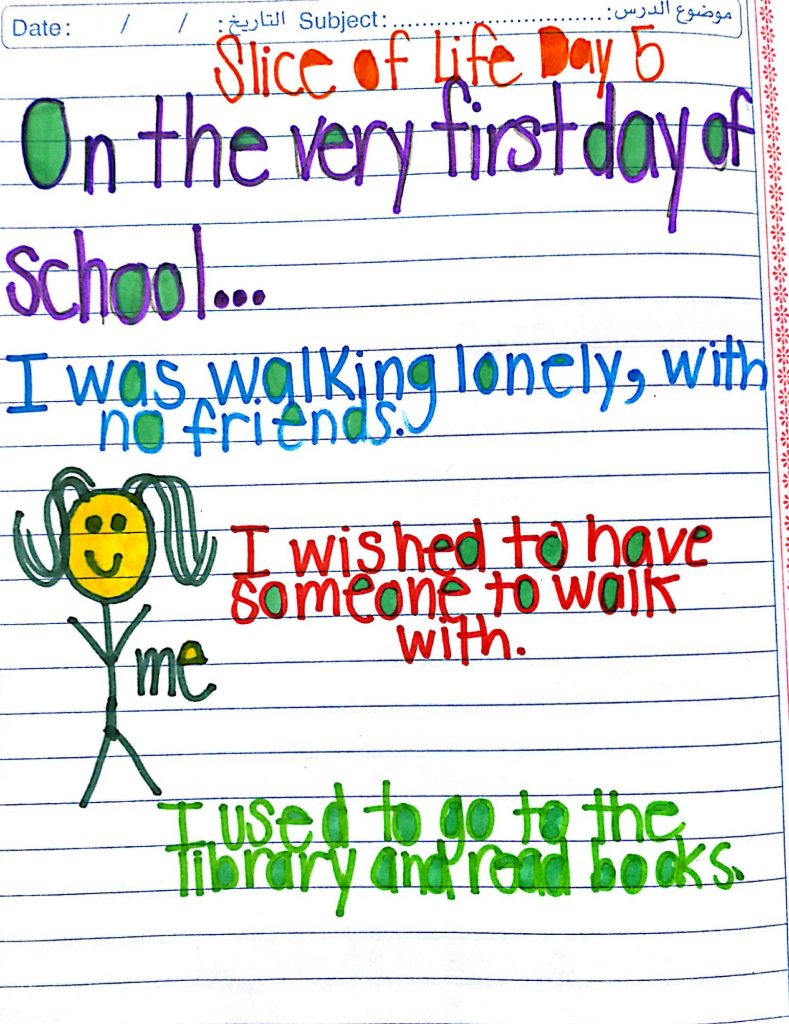 Date: / / التاريخ: Subject: ........................ موضوع الدرس:
Slice of Life Day 5
On the very first day of
school...
I was walking lonely, with
no friends.
I wished to have
someone to walk
with.
me
I used to go to the
library and read books.